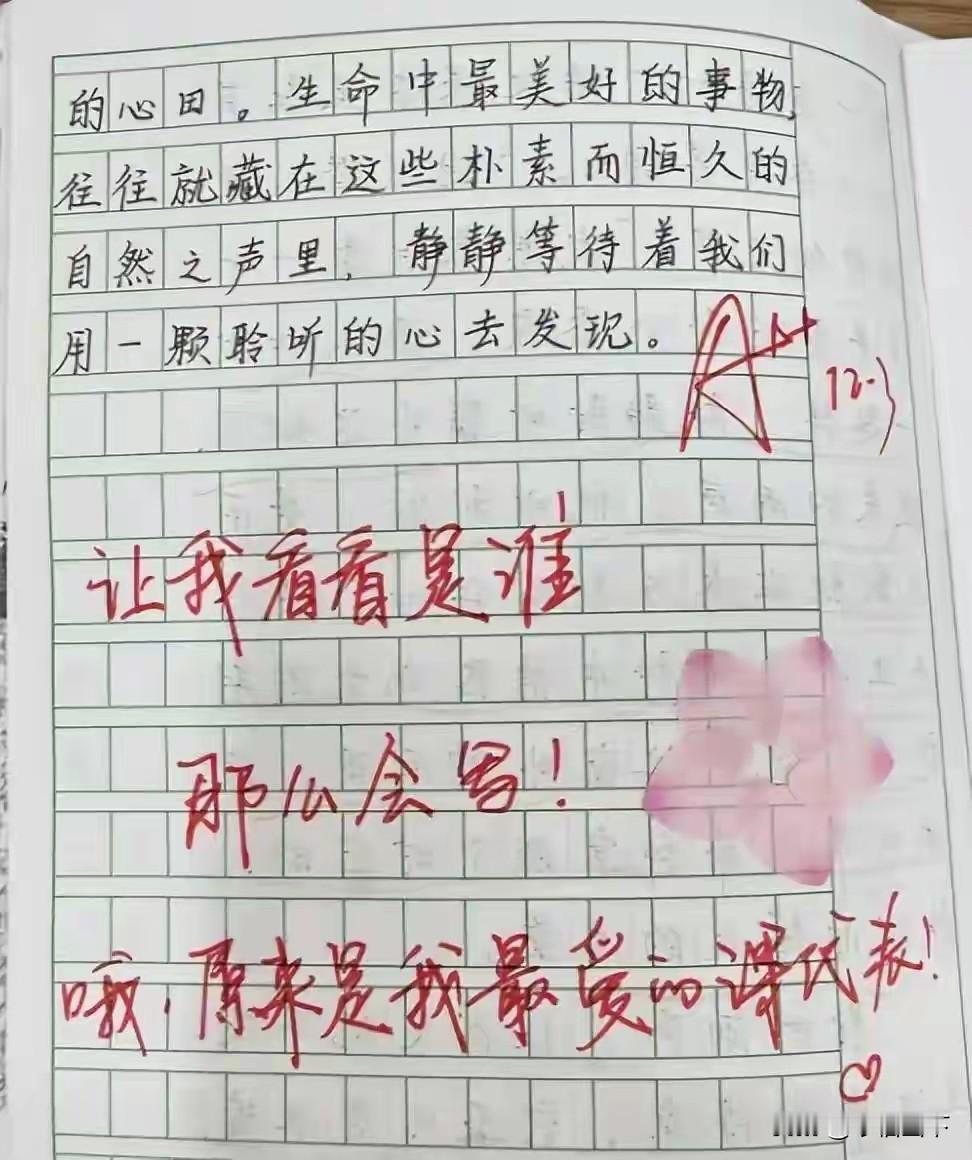 的心田。生命中最美好的事物,
往往就藏在这些朴素而恒久的
自然之声里，静静等待着我们
用一颗聆听的心去发现。
A++
12.3
让我看看是谁
那么会写！
哦，原来是我最爱的课代表！